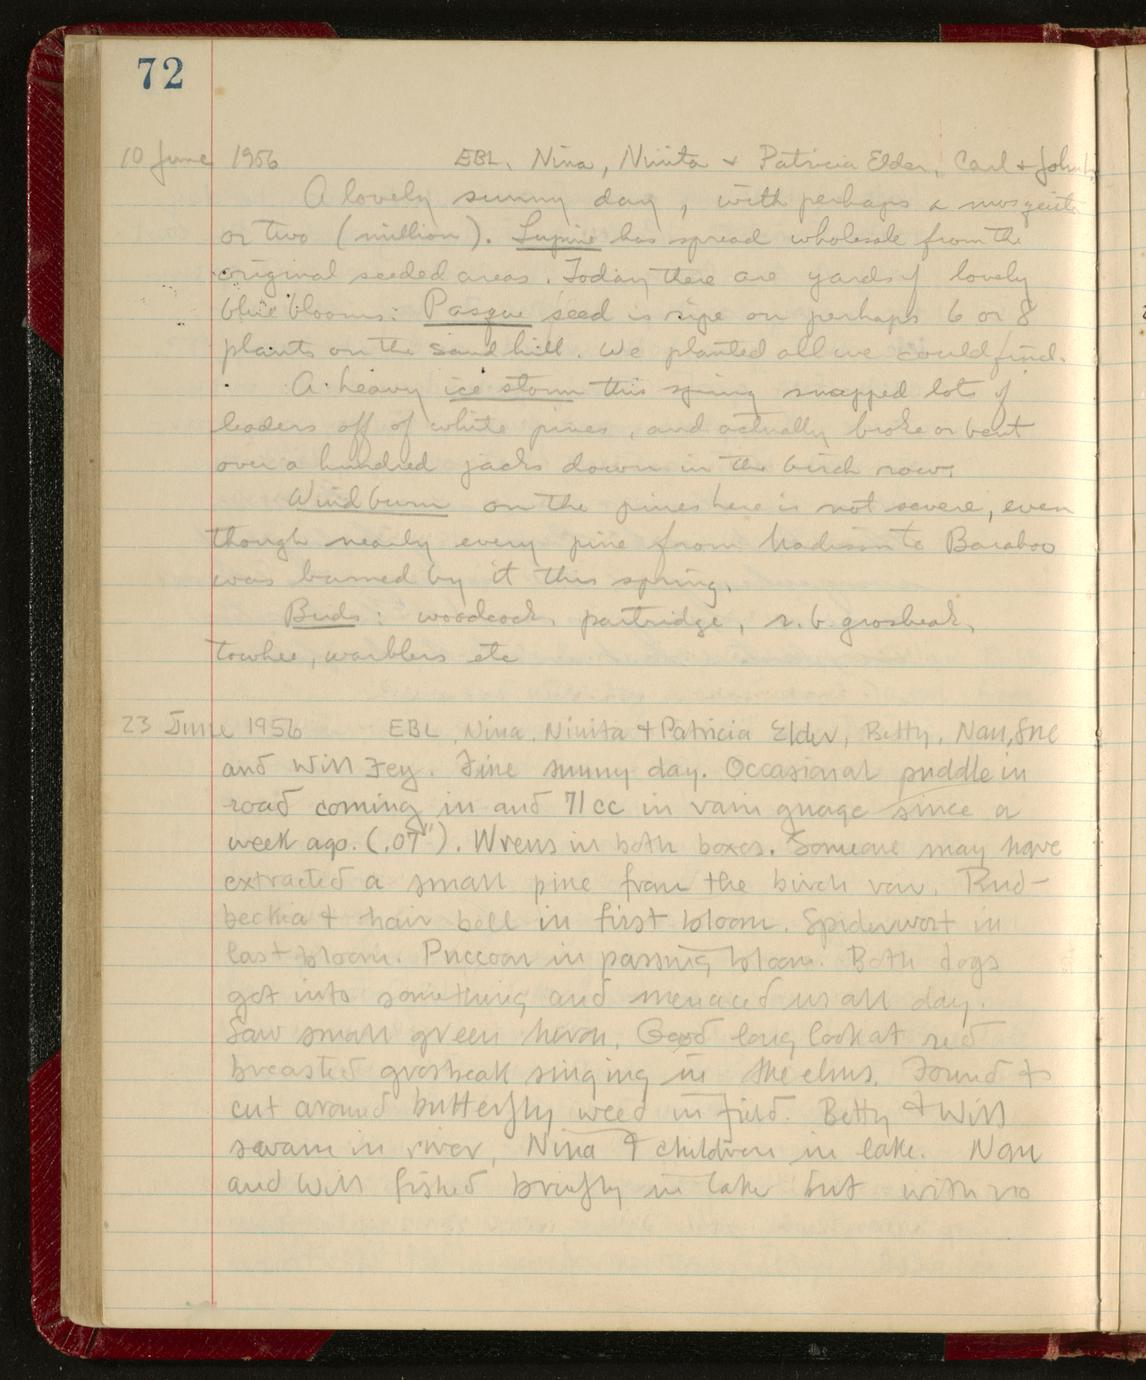 72
10 June 1956 EBL, Nina, Ninita & Patricia Elder, Carl & John L.
A lovely sunny day, with perhaps a mosquito
or two (million). Lupine has spread wholesale from the
original seeded areas. Today there are yards of lovely
blue blooms: Pasque seed is ripe on perhaps 6 or 8
plants on the sand hill. We planted all we could find.
A heavy ice storm this spring snapped lots of
leaders off of white pines, and actually broke or bent
over a hundred jacks down in the birch row.
Windburn on the pines here is not severe, even
though nearly every pine from Madison to Baraboo
was burned by it this spring.
Birds: woodcock, partridge, r. b. grosbeak,
towhee, warblers etc
23 June 1956 EBL, Nina, Ninita & Patricia Elder, Betty, Nan, Sue
and Will Fey. Fine sunny day. Occasional puddle in
road coming in and 71 cc in rain guage since a
week ago. (.07"). Wrens in both boxes. Someone may have
extracted a small pine from the birch row. Rud-
beckia & hair bell in first bloom. Spiderwort in
last bloom. Puccoon in passing bloom. Both dogs
got into something and menaced us all day.
Saw small green heron. Good long look at red
breasted grosbeak singing in the elms. Found &
cut around butterfly weed in field. Betty & Will
swam in river, Nina & children in lake. Nan
and Will fished briefly in lake but with no